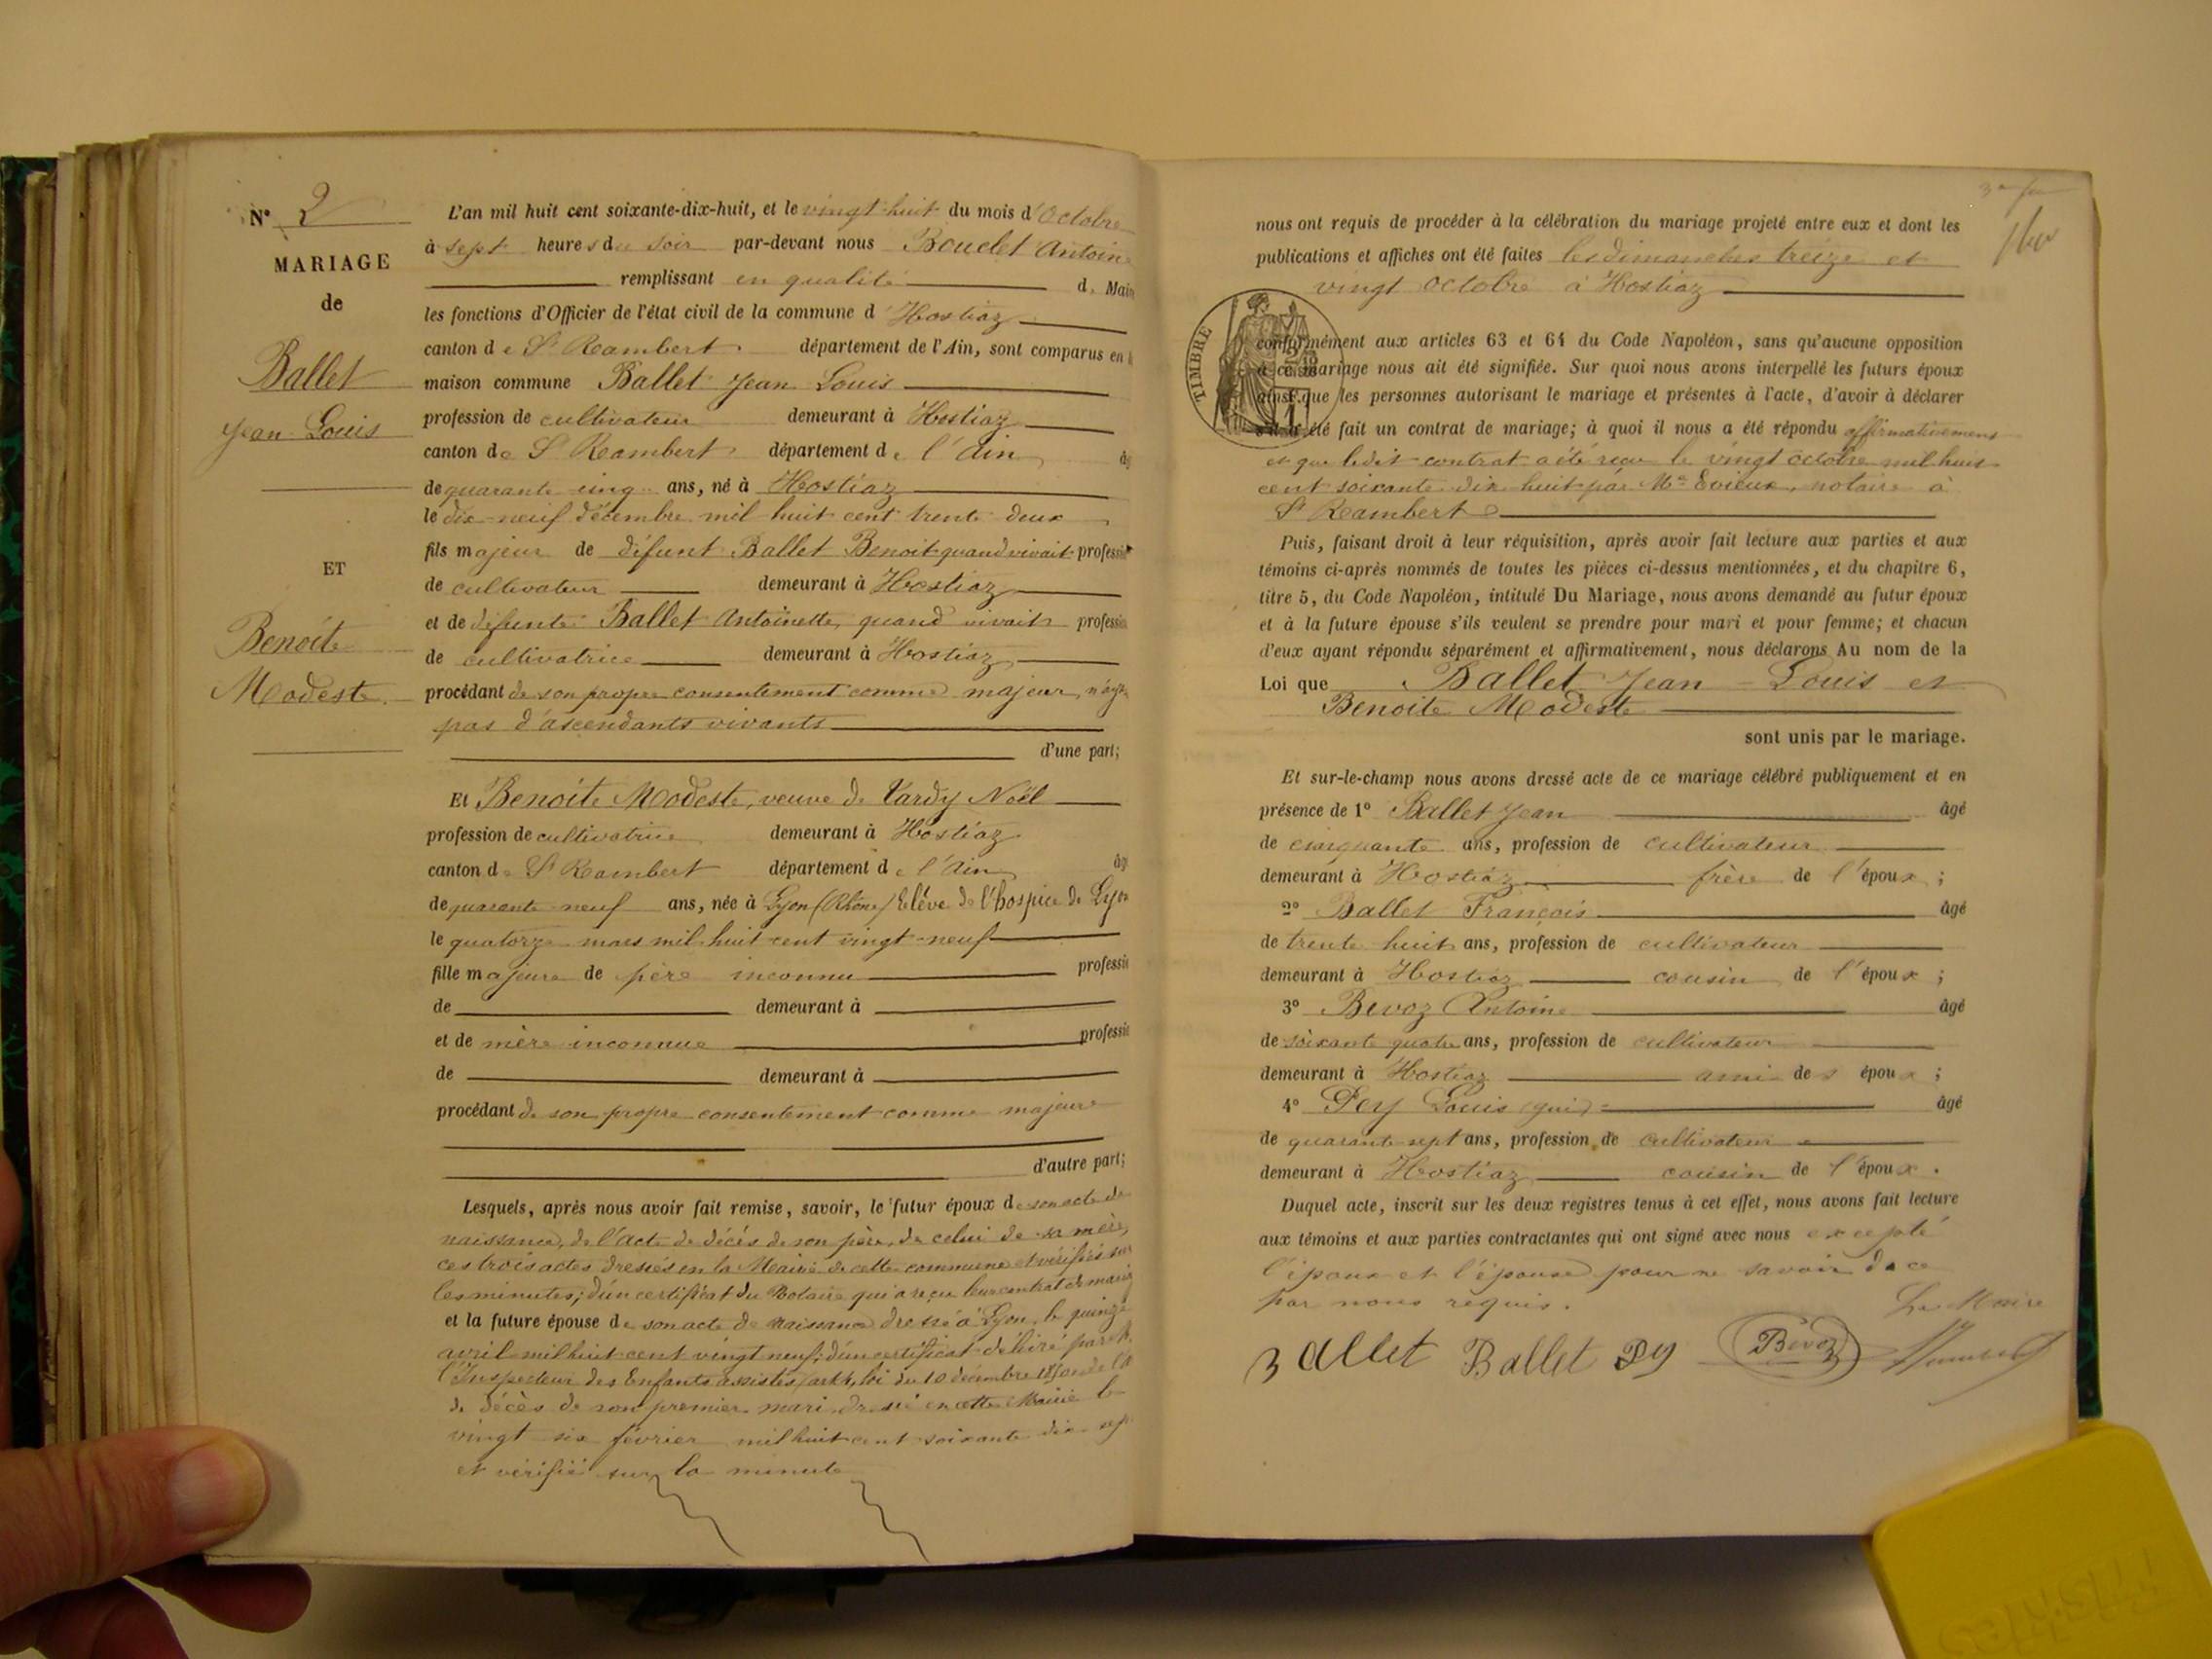 N° 2
MARIAGE
de
Ballet
Jean Louis
ET
Benoite
Modeste
L'an mil huit cent soixante-dix-huit, et le vingt huit du mois d'Octobre
à sept heures du soir par-devant nous Antoin
remplissant en qualité d. Mair
les fonctions d'Officier de l'état civil de la commune d'Hostiaz
canton de St Rambert département de l'Ain, sont comparus en
maison commune Ballet Jean Louis
profession de cultivateur demeurant à Hostiaz
canton de St Rambert département de l'Ain
de quarante cinq ans, né à Hostiaz
le dix-neuf décembre mil huit cent trente deux
fils majeur de défunt Ballet Benoit quand vivait professi
de cultivateur demeurant à Hostiaz
et de défunte Ballet Antoinette, quand vivait professi
de cultivatrice demeurant à Hostiaz
procédant de son propre consentement comme majeur, n'ay
pas d'ascendants vivants
d'une part;
Et Benoite Modeste, veuve de Vardy Noël
profession de cultivatrice demeurant à Hostiaz
canton de St Rambert département de l'Ain
de quarante neuf ans, née à Lyon (Rhône) Elève de l'hospice de Lyon
le quatorze mars mil huit cent vingt-neuf
fille majeure de père inconnu professi
de demeurant à
et de mère inconnue professi
de demeurant à
procédant de son propre consentement comme majeure
d'autre part;
Lesquels, après nous avoir fait remise, savoir, le futur époux de son acte de
naissance, de l'acte de décès de son père, de celui de sa mère,
ces trois actes dressés en la Mairie de cette commune et vérifiés sur
les minutes; d'un certificat du Notaire qui a reçu leur contrat de mariag
et la future épouse de son acte de naissance dressé à Lyon le quinze
avril mil huit cent vingt neuf; d'un certificat délivré par
l'Inspecteur des Enfants assistés (art 4, loi du 10 décembre
de décès de son premier mari dressé en cette Mairie le
vingt six février mil huit cent soixante dix sep
et vérifié sur la minute
nous ont requis de procéder à la célébration du mariage projeté entre eux et dont les
publications et affiches ont été faites les dimanches treize et
vingt octobre à Hostiaz
TIMBRE
conformément aux articles 63 et 64 du Code Napoléon, sans qu'aucune opposition
à ce mariage nous ait été signifiée. Sur quoi nous avons interpellé les futurs époux
ainsi que les personnes autorisant le mariage et présentes à l'acte, d'avoir à déclarer
s'il a été fait un contrat de mariage; à quoi il nous a été répondu affirmativement
et que ledit contrat a été reçu le vingt octobre mil huit
cent soixante dix huit par Me Evieux, notaire à
St Rambert
Puis, faisant droit à leur réquisition, après avoir fait lecture aux parties et aux
témoins ci-après nommés de toutes les pièces ci-dessus mentionnées, et du chapitre 6,
titre 5, du Code Napoléon, intitulé Du Mariage, nous avons demandé au futur époux
et à la future épouse s'ils veulent se prendre pour mari et pour femme; et chacun
d'eux ayant répondu séparément et affirmativement, nous déclarons Au nom de la
Loi que Ballet Jean-Louis et
Benoite Modeste
sont unis par le mariage.
Et sur-le-champ nous avons dressé acte de ce mariage célébré publiquement et en
présence de 1° Ballet Jean âgé
de cinquante ans, profession de cultivateur
demeurant à Hostiaz frère de l'époux;
2° Ballet François âgé
de trente huit ans, profession de cultivateur
demeurant à Hostiaz cousin de l'époux;
3° Bevoz Antoine âgé
de soixante quatre ans, profession de cultivateur
demeurant à Hostiaz ami des époux;
4° Pey Louis âgé
de quarante sept ans, profession de cultivateur
demeurant à Hostiaz cousin de l'époux.
Duquel acte, inscrit sur les deux registres tenus à cet effet, nous avons fait lecture
aux témoins et aux parties contractantes qui ont signé avec nous excepté
l'époux et l'épouse pour ne savoir de ce
par nous requis.
Le Maire
Ballet Ballet Pey Bevoz